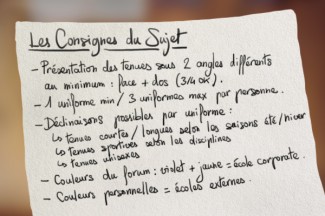 Les Consignes du Sujet
- Présentation des tenues sous 2 angles différents
au minimum : face + dos (3/4 ok).
- 1 uniforme min / 3 uniformes max par personne.
- Déclinaisons possibles par uniforme :
↳ tenues courtes / longues selon les saisons été / hiver
↳ tenues sportives selon les disciplines
↳ tenues unisexes
- Couleurs du forum : violet + jaune = école corporate.
- Couleurs personnelles = écoles externes.